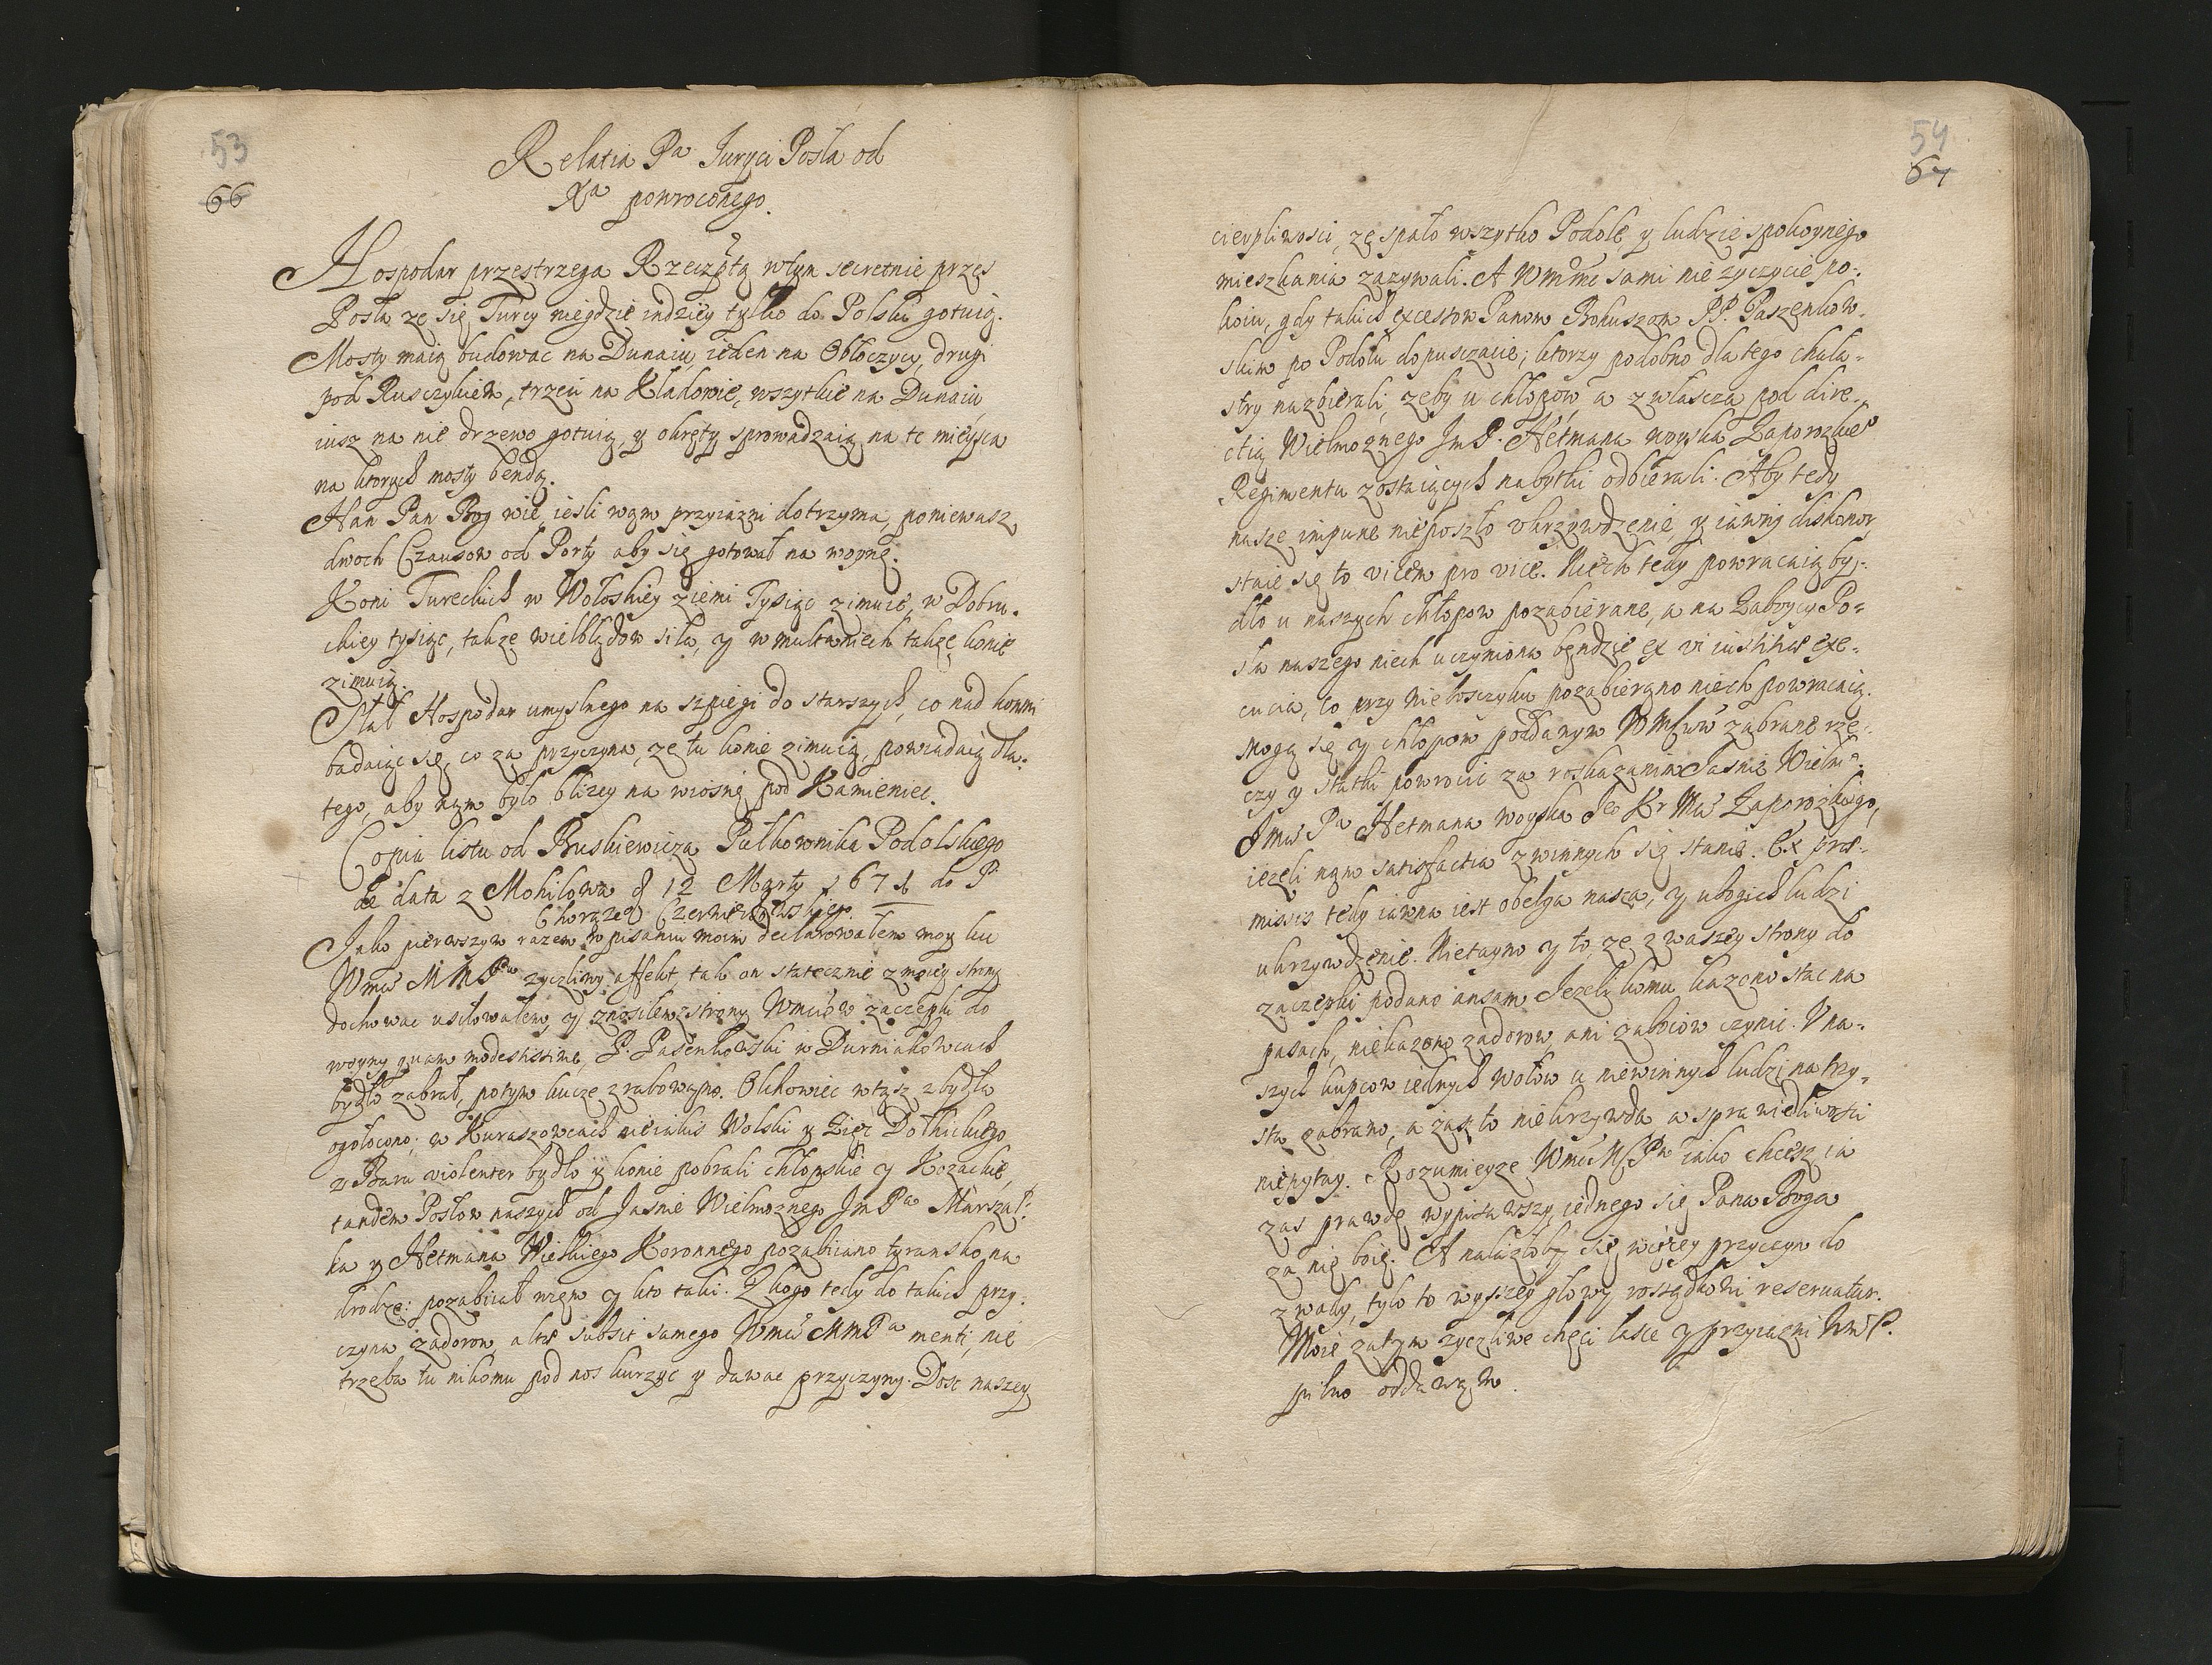 53
66
Relatia Pa Juryci Posła od
Xa powroconego.
Hospodar przestrzega Rzeczptą wtym secretnie przes
Posła ze się Turcy niegdzie indziey tylko do Polski gotuią.
Mosty maią budowac na Dunaiu, ieden na Obłoczycy, drugi
pod Rusczykiem, trzeci na Kladowie, wszytkie na Dunaiu,
iusz na nie drzewo gotuią, y okręty sprowadzaią na te mieysca
na ktorych mosty bendą.
Han Pan Bog wie iesli wąm przyiazni dotrzyma, poniewasz
dwoch Czausow od Porty aby się gotował na woynę.
Koni Tureckich w Wołoskiey ziemi Tysiąc zimuie, w Dobru-
ckiey tysiąc, takze wielblądow siła, y w multaniech takze konie
zimuią.
Słał Hospodar umyslnego na szpiegi do starszych, co nad końmi
badaiąc się, co za przyczyna, ze tu konie zimuią, powiadaią dla-
tego, aby nąm było blizey na wiosnę pod Kamieniec.
Copia listu od Buskiewicza Pułkownika Podolskiego
de data z Mohilowa d 12 Marty 1671 do P
Chorązeo Czerniechowskiego.
Jako pierwszym razem w pisaniu moim declarowałem moy ku
Wmci MMPu zyczliwy affekt, tak on statecznie z moiey strony
dochowac usiłowałem, y znosilem z strony Wmciow zaczepki do
woyny quam modestissime, P. Pasenkowski w Durniakowcach
bydło zabrał, potym kucze zrabowąno. Olchowiec wtąsz z bydła
ogołocono; w Kuraszowcach nieiakis Wolski y Zięc Dołhickiego
z Baru violenter bydło y konie pobrali chłopskie y Kozackie,
tandem Posłow naszych od Jasnie Wielmoznego Jm Pa Marszał-
ka y Hetmana Wielkiego Koronnego pozabiiano tyransko na
drodze: pozabiiał więm y kto taki. Z kogo tedy do takich przy-
czyna zadorow, altæ subsit samego Wmci MMPa menti, nie
trzeba tu nikomu pod nos kurzyc y dawac przyczyny. Dosc naszey
54
67
cierpliwosci, ze spało wszytko Podole, y ludzie spokoynego
mieszkania zazywali. A Wmme sami nie zyczycie po-
koiu, gdy takich excessow Panom Bokuszom PP. Paszenkow-
skim po Podolu dopusczacie; ktorzy podobno dla tego chała-
stry nazbierali, zeby u chłopow, a zwłascza pod dire-
ctią Wielmoznego Jm P. Hetmana woyska Zaporozkieo
Regimentu zostaiących nabytki odbierali. Aby tedy
nasze impune nieposzło ukrzywdzenie, y iawny dishonor,
staie się to vicem pro vice. Niech tedy powracaią by-
dło u naszych chłopow pozabierane, a na Zaboycy Po-
sła naszego niech uczyniona będzie ex vi iustitiæ exe-
cucia, co przy Nietosczyku pozabierąno niech powracaią.
Mogą się y chłopom poddanym WMciow zabrane rze-
czy y statki powrocic za roskazaniem Jasnie Wielmo
Jmci Pa Hetmana woyska Jeo Kr Mci Zaporozkiego,
iezeli nąm satisfactia z winnych się stanie. Ex præ-
missis tedy iawna iest obelga nasza, y ubogich ludzi
ukrzywdzenie. Nietayno y to, ze z waszey strony do
zaczepki podano ansam. Jezeli komu kazono stac na
pasach, niekazono zadorow, ani zaboiow czynic. U na-
szych kupcow iednych wołow u niewinnych ludzi na trzy-
sta zabrano; a zasz to niekrzywda, a sprawiedliwosci
niepytay. Rozumieyze Wmci MPa iako chcesz ia
zas prawdę wypisawszy iednego się Pana Boga
za nię boię. A nalazłoby się więcey przyczyn do
zwady, tylo to wyszszey głowy rossądkowi reservatur.
Moie zatym zyczliwe chęci łasce y przyiazni Wm P.
pilno oddawąm.